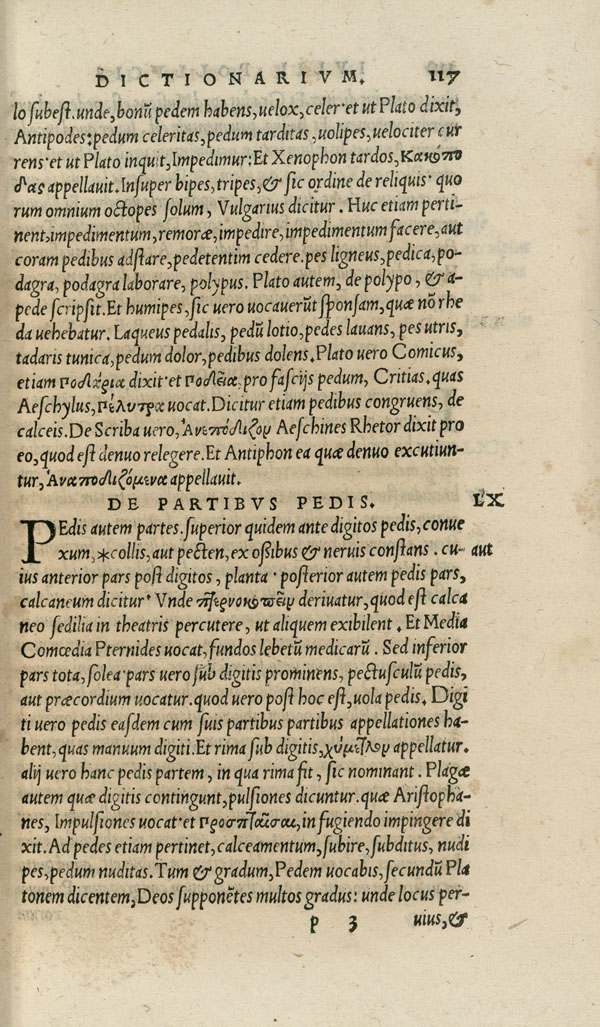 DICTIONARIVM. 117
lo subest. unde, bonũ pedem habens, uelox, celer· et ut Plato dixit,
Antipodes: pedum celeritas, pedum tarditas, uolipes, uelociter cur
rens· et ut Plato inquit, Impedimur: Et Xenophon tardos, κακόπο
δας appellauit. Insuper bipes, tripes, & sic ordine de reliquis· quo
rum omnium octopes solum, Vulgarius dicitur. Huc etiam perti-
nent, impedimentum, remoræ, impedire, impedimentum facere, aut
coram pedibus adstare, pedetentim cedere. pes ligneus, pedica, po-
dagra, podagra laborare, polypus. Plato autem, de polypo, & a-
pede scripsit. Et humipes, sic uero uocauerũt sponsam, quæ nõ rhe
da uehebatur. Laqueus pedalis, pedũ lotio, pedes lauans, pes utris,
tadaris tunica, pedum dolor, pedibus dolens. Plato uero Comicus,
etiam ποδάρια dixit· et ποδεῖα, pro fascijs pedum, Critias. quas
Aeschylus, πέλυτρα uocat. Dicitur etiam pedibus congruens, de
calceis. De Scriba uero, Ἀνεπόδιζον Aeschines Rhetor dixit pro
eo, quod est denuo relegere. Et Antiphon ea quæ denuo excutiun-
tur, Ἀναποδιζόμενα appellauit.
DE PARTIBVS PEDIS. LX
PEdis autem partes. superior quidem ante digitos pedis, conue
xum, *collis, aut pecten, ex ossibus & neruis constans. cu- aut
ius anterior pars post digitos, planta· posterior autem pedis pars,
calcaneum dicitur· Vnde πτερνοκοπεῖν deriuatur, quod est calca
neo sedilia in theatris percutere, ut aliquem exibilent. Et Media
Comœdia Pternides uocat, fundos lebetũ medicarũ. Sed inferior
pars tota, solea· pars uero sub digitis prominens, pectusculũ pedis,
aut præcordium uocatur. quod uero post hoc est, uola pedis. Digi
ti uero pedis easdem cum suis partibus partibus appellationes ha-
bent, quas manuum digiti. Et rima sub digitis, χύμετλον appellatur.
alij uero hanc pedis partem, in qua rima fit, sic nominant. Plagæ
autem quæ digitis contingunt, pulsiones dicuntur. quæ Aristopha-
nes, Impulsiones uocat· et προσπταῖσαι, in fugiendo impingere di
xit. Ad pedes etiam pertinet, calceamentum, subire, subditus, nudi
pes, pedum nuditas. Tum & gradum, Pedem uocabis, secundũ Pla
tonem dicentem, Deos supponẽtes multos gradus: unde locus per-
p 3 uius, &